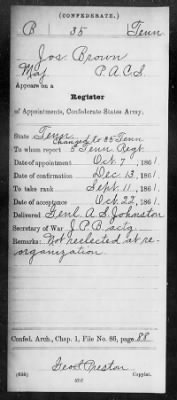 (CONFEDERATE.)
B 35 Tenn
Jos. Brown
Maj P.A.C.S.
Appears on a
Register
of Appointments, Confederate States Army.
State Tenn
Changed to 35 Tenn
To whom report 5 Tenn Regt.
Date of appointment Oct. 7, 1861.
Date of confirmation Dec. 13, 1861.
To take rank Sept. 11, 1861.
Date of acceptance Oct. 22, 1861.
Delivered Genl. A. S. Johnston
Secretary of War J. P. B. actg
Remarks: Not reelected at re-
organization.
Confed. Arch., Chap. 1, File No. 86, page 88
Geo. S. Preston
(636) Copyist.